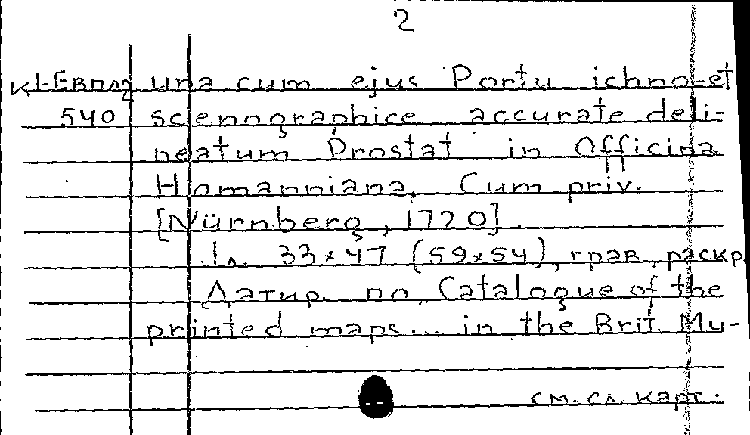 2
К1-Евпл2 una cum ejus Portu ichno-et
540 scenographice accurate deli-
neatum Prostat in Officina
Homanniana, Cum priv.
[Nürnberg, 1720].
1 л. 33×47 (59×54), грав., раскр.
Датир. по Catalogue of the
printed maps... in the Brit. Mu-
см. сл. карт.